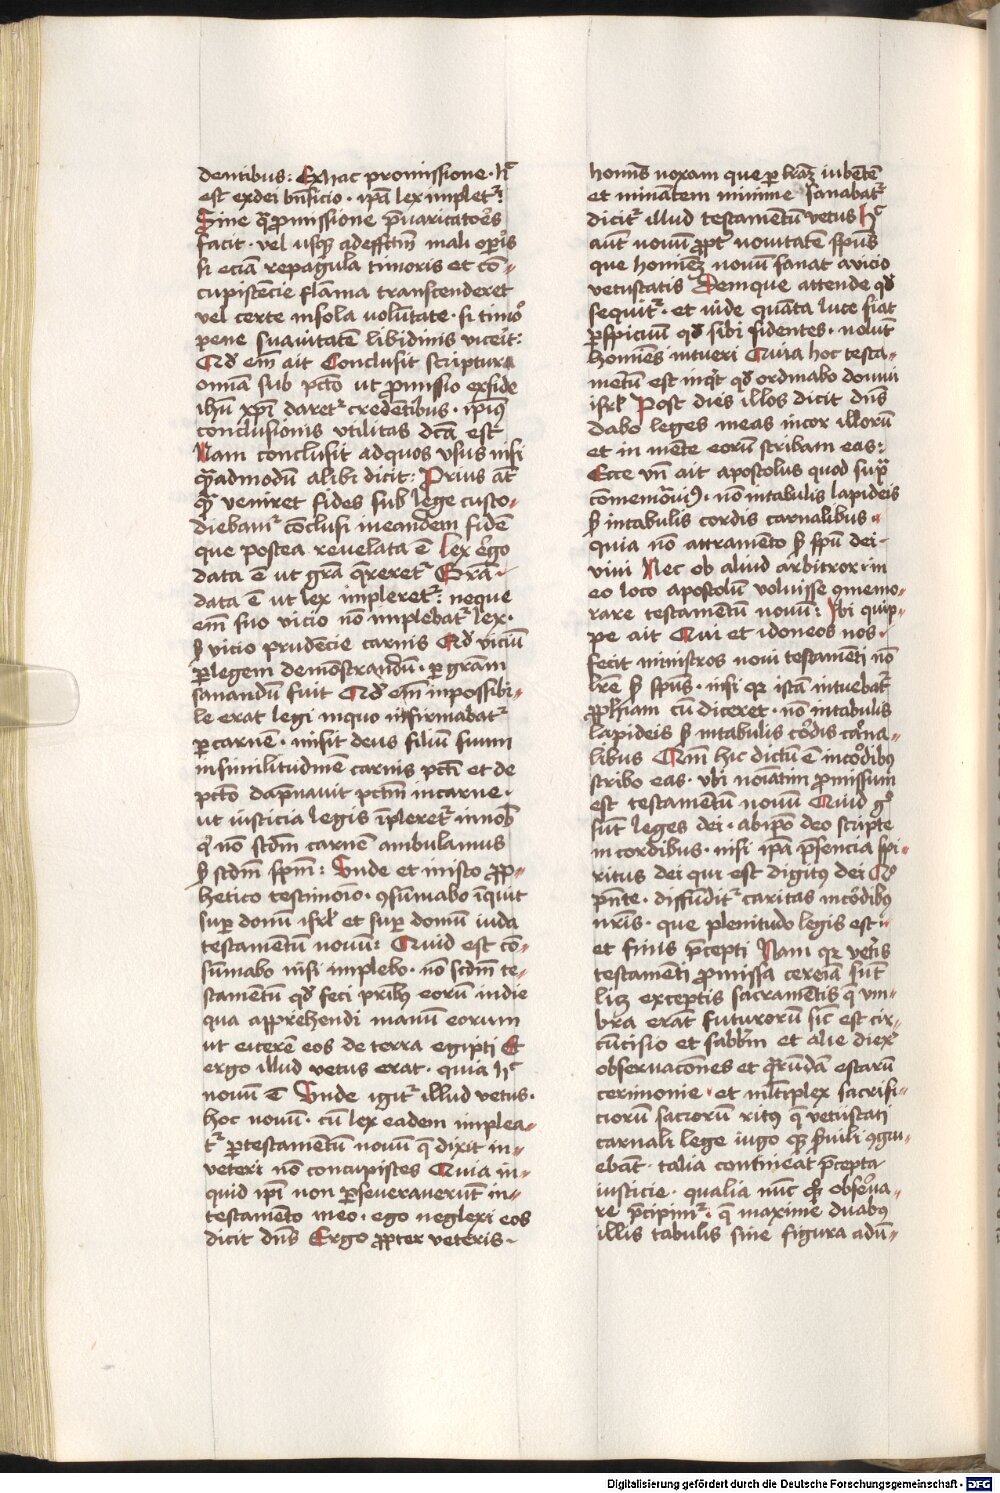 dentibus: Ex hac promissione · hͨ
est ex dei bn̄ficio · ip̄a lex impletᷣ:
Sine qͣ ꝓmissione p̄uaricatores
facit · vel usqꝫ ad effctm̄ mali oper̄is
si eciā repagula timoris et cō-
cupistēcie flāma transcenderet
vel certe in sola volūtate · si timor̄
pene suauitatē libidinis vicerit:
Qđ em̄ ait Conclusit scriptura
om̄ia sub pctō ut ꝓmissio ex fide
ihū xp̄i daretᷣ credētibus · ip̄iꝰ
conclusionis vtilitas dc̄a est
Nam conclusit ad quos vsus nisi
quēadmodū alibi dicit: Prius āt
qͣ veniret fides sub lege custo-
diebamᷣ cōclusi in eandem fidē
que postea reuelata ē Lex ergo
data ē ut grā quereretᷣ Grā ·
data ē ut lex impleretᷣ: neque
em̄ suo vicio nō implebatᷣ lex ·
ꝫ vicio prudēcie carnis Qđ viciū
ꝑ legem demōstrandū · ꝑ grām
sanandū fuit Qđ em̄ inpossibi-
le erat legi in quo infirmabatᷣ
ꝑ carnē · misit deus filiū suum
in similitudinē carnis pcti et de
pctō dāpnauit pctm̄ in carne ·
ut iusticia legis īpleretᷣ in nob̄
qͥ nō scdm̄ carnē ambulamus
ꝫ scdm̄ spm̄: Unde et in isto ꝓp-
hetico testimōio · ꝯsūmabo īquit
sup domū isrl̄ et sup domū iuda
testamētū nouū: Quid est cō-
sūmabo nisi implebo · nō scdm̄ te-
stamētū qđ feci pr̄ibꝰ eorū in die
qua apprehendi manū eorum
ut eicerē eos de terra egipti Et
ergo illud vetus erat · quia hͨ
nouū ē Unde igitᷣ illud vetus ·
hoc nouū · cū lex eadem implea-
tᷣ ꝑ testamētū nouū q̄ dixit in-
veteri nō concupistes Quia in-
quid ip̄i non ꝑseuerauerūt in-
testamēto meo · ego neglexi eos
dicit dn̄s Ergo ꝓpter veteris ·
homīs noxam que ꝑ lr̄aꝫ iubētē
et minātem minime sanabatᷣ
dicitᷣ illud testamētū vetus hͨ
aūt nouū ꝓptᷣ nouitatē spūs
que hominēꝫ nouū sanat a vicio
vetustatis Demque attende qđ
sequitᷣ · et vide quāta luce fiat
ꝑspicuū qđ sibi fidentes · nolūt
homīes intueri Quia hoc testa-
mētū est inqͥt qđ ordinabo domui
isrl̄ Post dies illos dicit dn̄s
dabo leges meas in cor illorū
et in mēte eorū scribam eas:
Ecce vn̄ ait apostolus quod supᷓ
cōmemorauimꝰ · nō in tabulis lapideis
ꝫ in tabulis cordis carnalibus ·
quia nō attramēto ꝫ spū dei ·
viui Nec ob aliud arbitror · in
eo loco apostolū voluisse ꝯmemo-
rare testamētū nouū: Vbi quip-
pe ait Qui et idoneos nos ·
fecit ministros noui testamēti nō
lr̄e ꝫ spūs · nisi qꝛ istā intuebatᷣ
ꝓph̄iam cū diceret · nō in tabulis
lapideis ꝫ in tabulis cordis carna-
libus Qm̄ hic dictū ē in cordibꝰ
scribo eas · vbi noīatim ꝓmissum
est testamētū nouū Quid gͦ
sūt leges dei · ab ip̄o deo scripte
in cordibus · nisi ip̄a p̄sencia spi-
ritus dei qui est digitꝰ dei Qo
p̄nte · diffūditᷣ caritas in cordibꝰ
nr̄is · que plenitudo legis est ·
et finis p̄cepti Nam qꝛ vetis
testamēti ꝓmissa terrena sūt
licꝫ exceptis sacramētis q̄ vm-
bra erāt futurorū sic̄ est cir-
cūcisio et sabbm̄ et alie dierꝝ
obseruacōnes et qͣrūdā estarū
cerimonie · et mltiplex sacrifi-
ciorū sacrorū ritꝰ q̄ vetustati
carnali lege iugo qꝫ s̄uili ꝯgru-
ebāt · talia continēat p̄cepta
iusticie · qualia nūc qͦꝫ obserua-
re p̄cipimᷣ · q̄ maxime duabꝰ
illis tabulis sine figura adū-
Digitalisierung gefördert durch die Deutsche Forschungsgemeinschaft - DFG